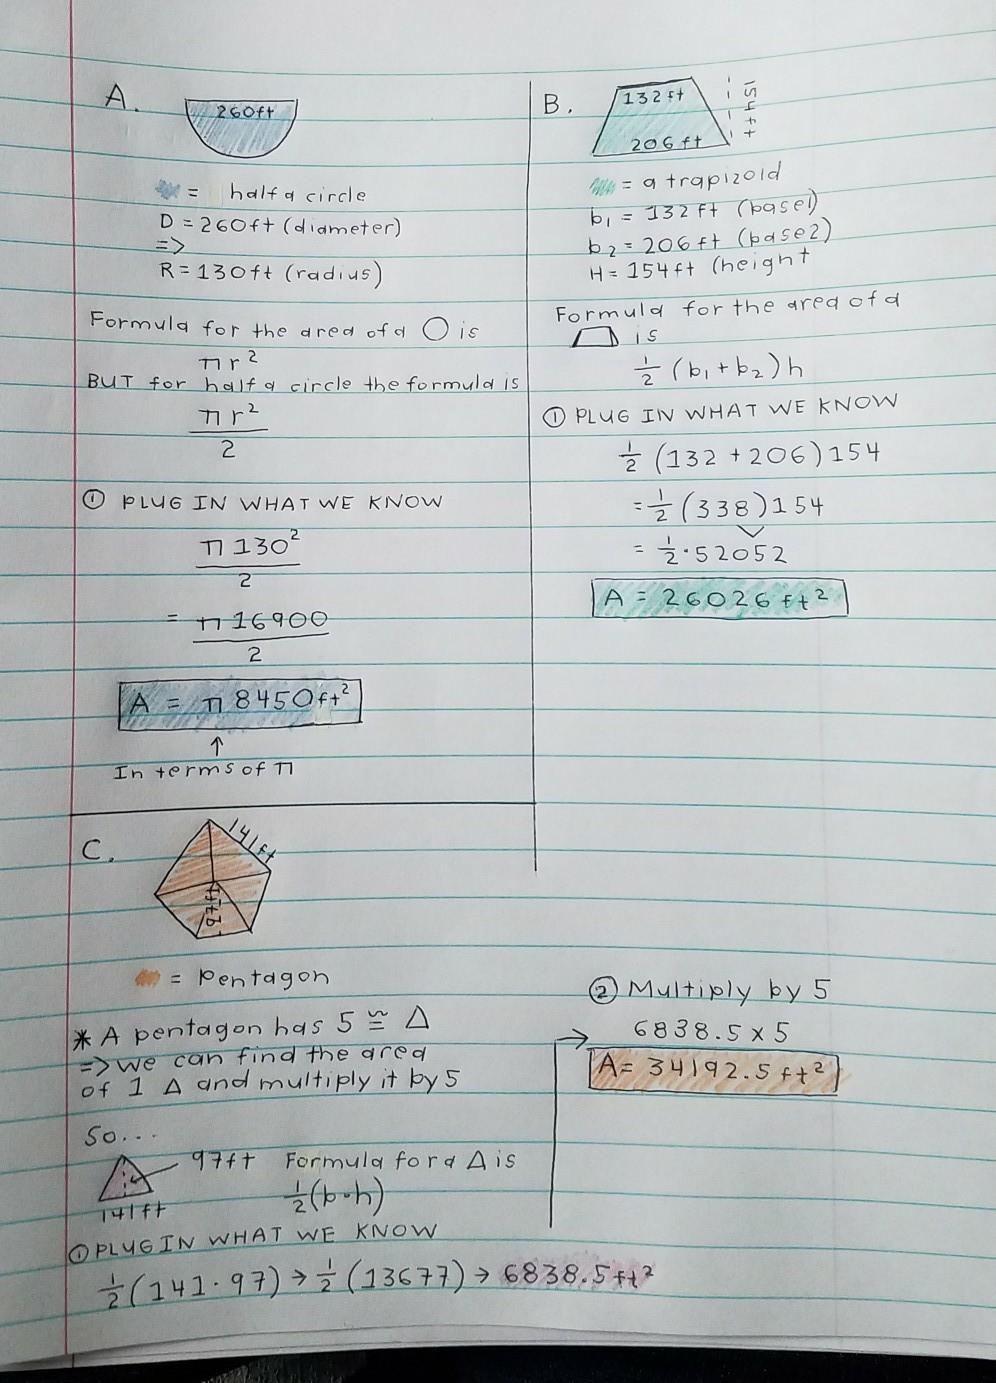 A.
260ft
= half a circle
D = 260ft (diameter)
=>
R = 130ft (radius)
Formula for the area of a ◯ is
πr²
BUT for half a circle the formula is
πr²
2
① PLUG IN WHAT WE KNOW
π130²
2
= π16900
2
A = π8450ft²
↑
In terms of π
B.
132ft
154ft
206ft
= a trapizoid
b₁ = 132ft (base1)
b₂ = 206ft (base2)
H = 154ft (height
Formula for the area of a
⏢ is
½ (b₁ + b₂) h
① PLUG IN WHAT WE KNOW
½ (132 + 206) 154
= ½ (338) 154
= ½ · 52052
A = 26026ft²
C.
141ft
97ft
= Pentagon
* A pentagon has 5 ≅ △
=> we can find the area
of 1 △ and multiply it by 5
So...
97ft Formula for a △ is
141ft
½(b·h)
① PLUG IN WHAT WE KNOW
½(141·97) → ½(13677) → 6838.5ft²
② Multiply by 5
→ 6838.5 x 5
A = 34192.5ft²